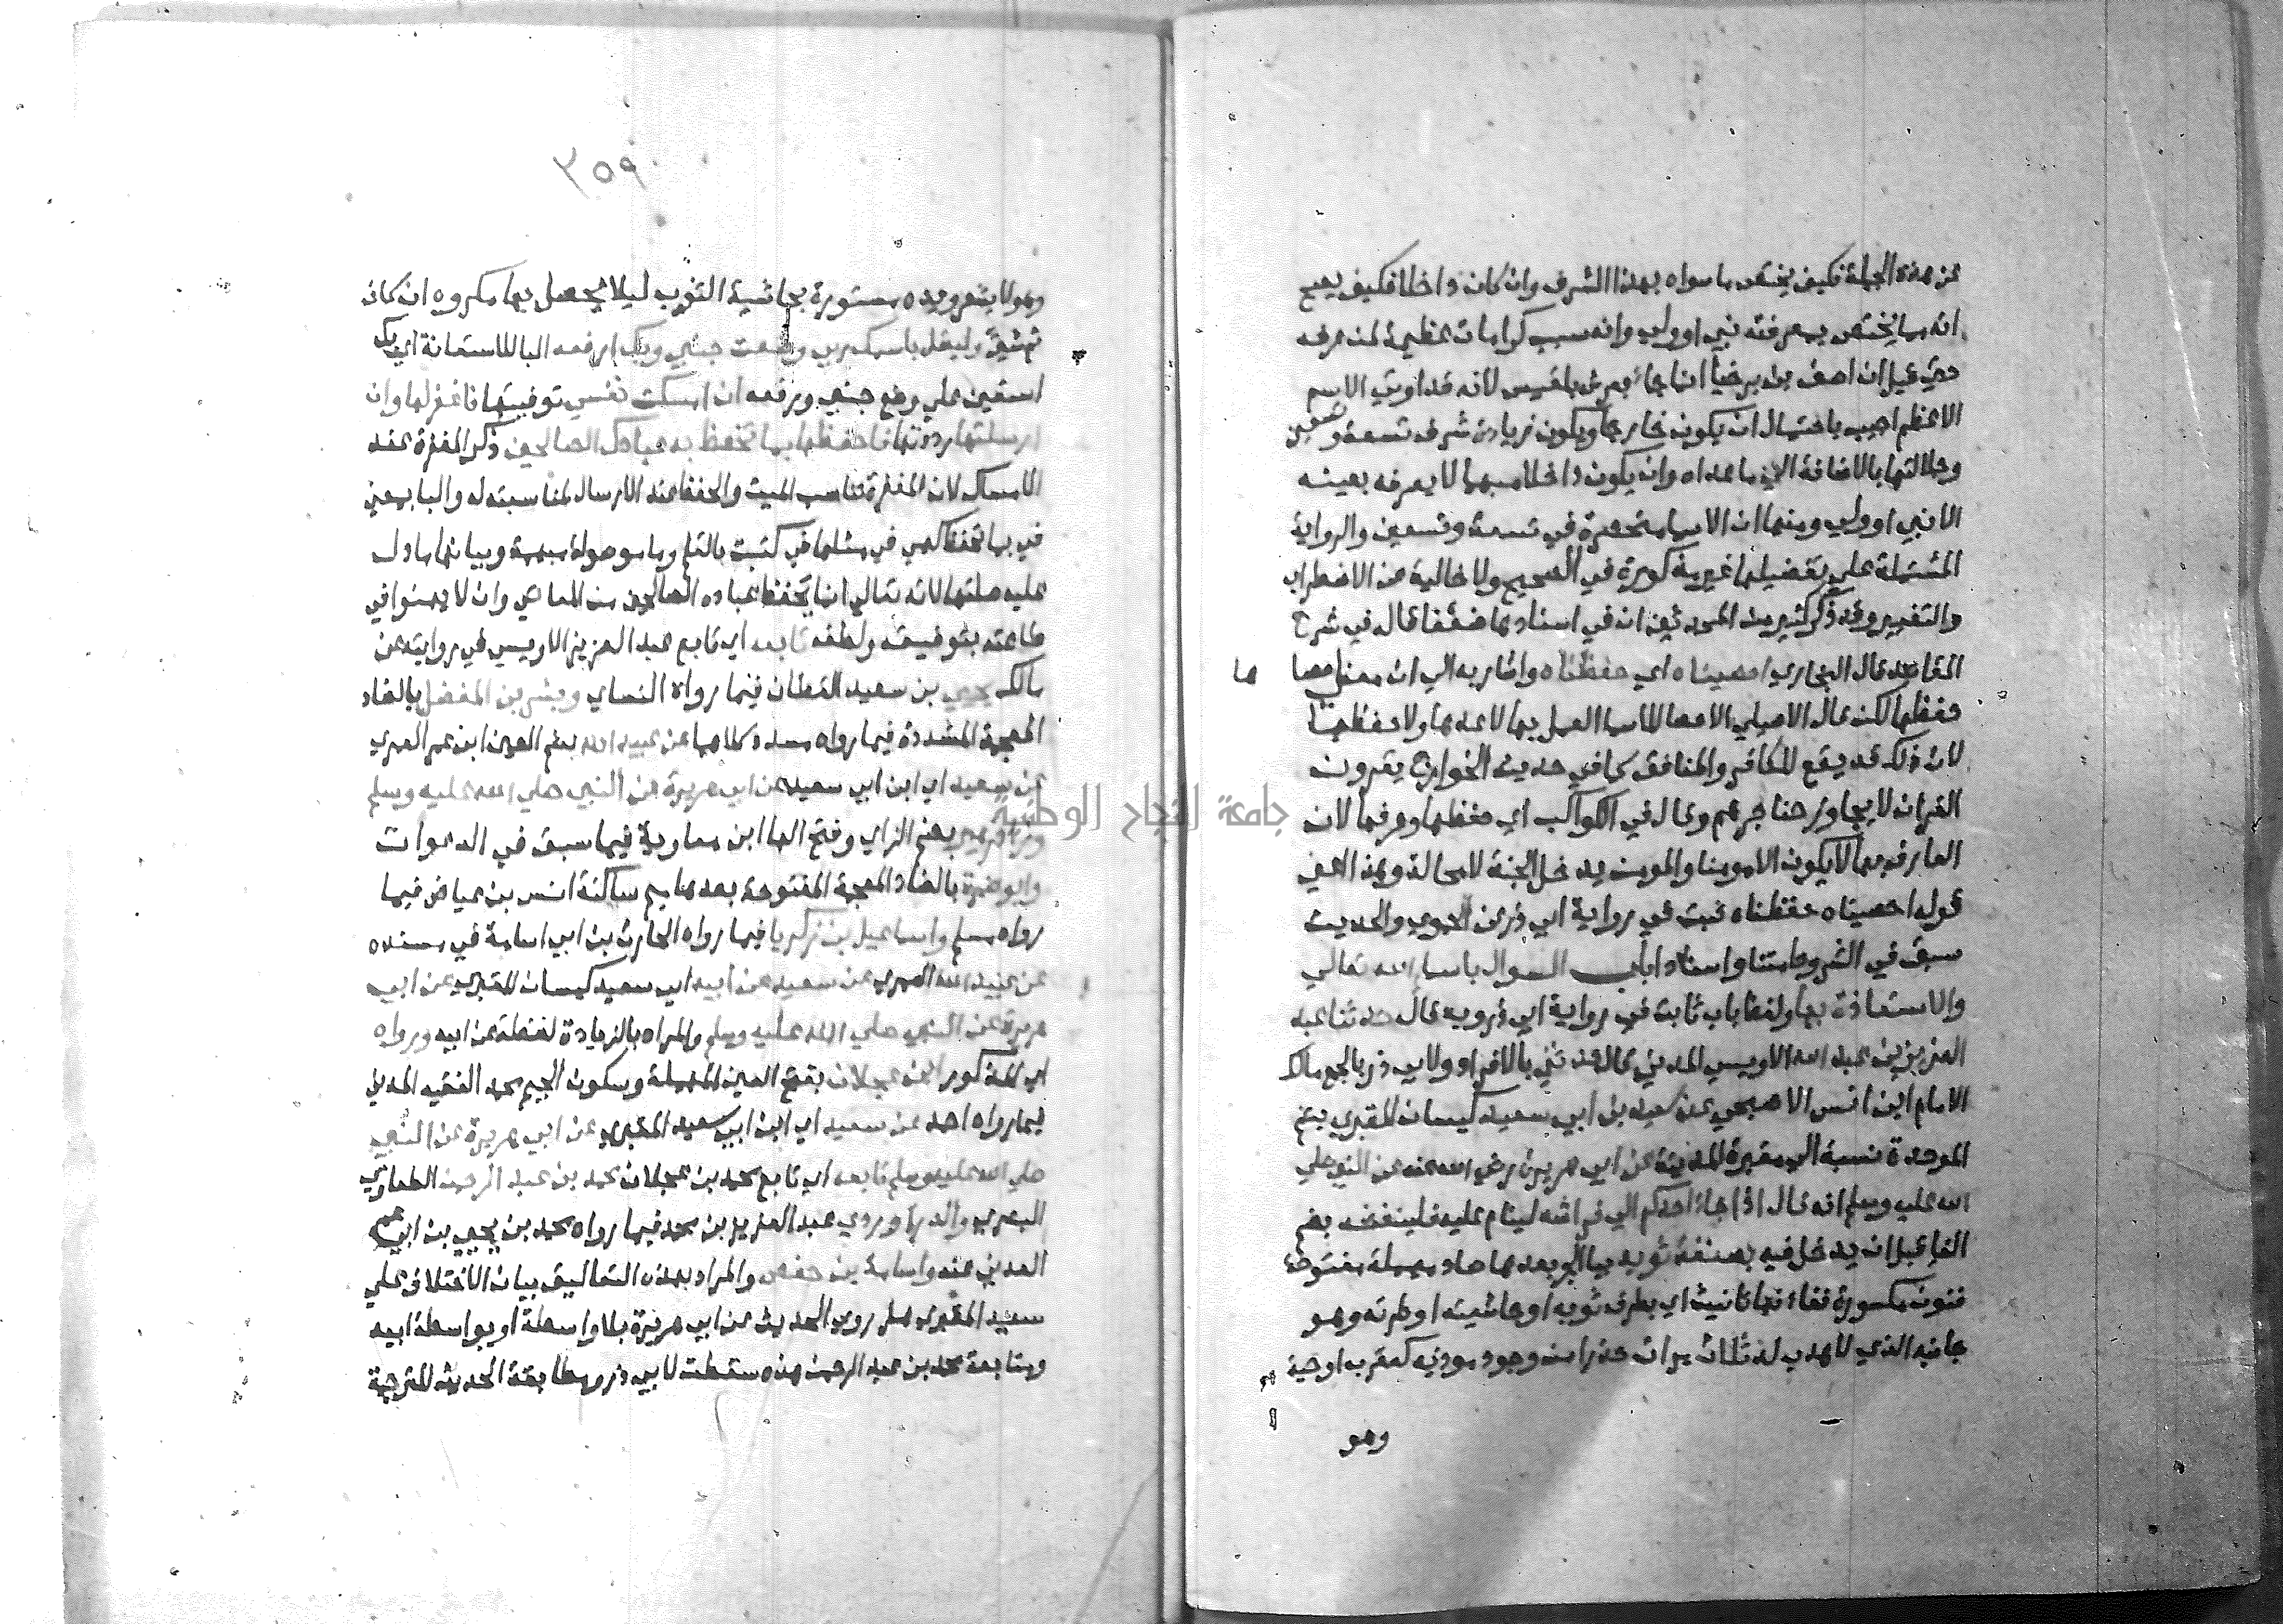 عن هذه الجملة فكيف يختص ما سواه بهذا الشرف وان كان داخلا فكيف يصح
انه مما يختص بمعرفته نبي او ولي وانه سبب كرامات عظيمة لمن عرفه
حتي قيل ان اصف بن برخيا انما جاء بعرش بلقيس لانه قد اوتي الاسم
الاعظم اجيب باحتمال ان يكون خارجا ويكون زيادة شرف تسعة وتسعين
وجلالتها بالاضافة الي ما عداه وان يكون داخلا مبهما لا يعرفه بعينه
الا نبي او ولي ومنها ان الاسما منحصرة في تسعة وتسعين والرواية
المشتملة علي تفصيلها غير مذكورة في الصحيح ولا خالية من الاضطراب
والتغيير وقد ذكر كثير من المحدثين ان في اسنادها ضعفا قال في شرح
المقاصد قال البخاري احصيناه اي حفظناه واشار به الي ان معني احصاها
حفظها لكن قال الاصيلي الاحصا للاسما العمل بها لا عدها ولا حفظها
لان ذلك قد يقع للكافر والمنافق كما في حديث الخوارج يقرون
القران لا يجاوز حناجرهم وقال في الكواكب اي حفظها وعرفها لان
العارف بها لا يكون الا مومنا والمومن يدخل الجنة لا محالة وهذا اعني
قوله احصيناه حفظناه ثبت في رواية ابي ذر عن الحموي والحديث
سبق في الشروط متنا واسنادا باب السوال باسما الله تعالي
والاستعاذة بها ولفظ باب ثابت في رواية ابي ذر وبه قال حدثنا عبد
العزيز بن عبد الله الاويسي المدني قال حدثني بالافراد ولابي ذر بالجمع مالك
الامام ابن انس الاصبحي عن سعيد بن ابي سعيد كيسان المقبري بضم
الموحدة نسبة الي مقبرة المدينة عن ابي هريرة رضي الله عنه عن النبي صلي
الله عليه وسلم انه قال اذا جاء احدكم الي فراشه لينام عليه فلينفضه بضم
الفا قبل ان يدخل فيه بصنفة ثوبه بالجر بعدها صاد مهملة مفتوحة
فنون مكسورة ففاء فها تانيث اي بطرف ثوبه او حاشيته او طرته وهو
جانبه الذي لا هدب له ثلاث مرات حذرا من وجود موذيه كعقرب او حية
وهو
٣٥٩
وهو لا يشعر ويده مستورة بحاشية الثوب ليلا يحصل بها مكروه ان كان
ثم شي وليقل باسمك ربي وضعت جنبي وبك ارفعه البا للاستعانة اي بك
استعين علي وضع جنبي ورفعه ان امسكت نفسي توفيتها فاغفر لها وان
ارسلتها رددتها فاحفظها بما تحفظ به عبادك الصالحين ذكر المغفرة عند
الامساك لان المغفرة تناسب الميت والحفظ عند الارسال لمناسبته له والبا بمعني
في بما تحفظ كهي في مثلها في كتبت بالقلم وما موصولة مبهمة وبيانها ما دل
عليه صلتها لانه تعالي انما يحفظ عباده الصالحين من المعاصي وان لا يهنوا في
طاعته بتوفيقه ولطفه تابعه اي تابع عبد العزيز الاويسي في روايته عن
مالك يحيي بن سعيد القطان فيما رواه النساي وبشر بن المفضل بالضاد
المعجمة المشددة فيما رواه مسدد كلاهما عن عبيد الله بضم العين ابن عمر العمري
عن سعيد اي ابن ابي سعيد عن ابي هريرة عن النبي صلي الله عليه وسلم
وزاد زهير بضم الزاي وفتح الها ابن معاوية فيما سبق في الدعوات
وابو ضمرة بالضاد المعجمة المفتوحة بعدها ميم ساكنة انس بن عياض فيما
رواه مسلم واسماعيل بن زكريا فيما رواه الحارث بن ابي اسامة في مسنده
عن عبيد الله العمري عن سعيد عن ابيه ابي سعيد كيسان المقبري عن ابي
هريرة عن النبي صلي الله عليه وسلم والمراد بالزيادة لفظة عن ابيه ورواه
اي المذكور ابن عجلان بفتح العين المهملة وسكون الجيم محمد الفقيه المدني
فيما رواه احمد عن سعيد اي ابن ابي سعيد المقبري عن ابي هريرة عن النبي
صلي الله عليه وسلم تابعه اي تابع محمد بن عجلان محمد بن عبد الرحمن الطفاوي
البصري والدراوردي عبد العزيز بن محمد فيما رواه محمد بن يحيي بن ابي عمر
العدني عنه واسامة بن حفص والمراد بهذه التعاليق بيان الاختلاف علي
سعيد المقبري هل روي الحديث عن ابي هريرة بلا واسطة او بواسطة ابيه
ومتابعة محمد بن عبد الرحمن هذه سقطت لابي ذر ومطابقة الحديث للترجمة
جامعة النجاح الوطنية